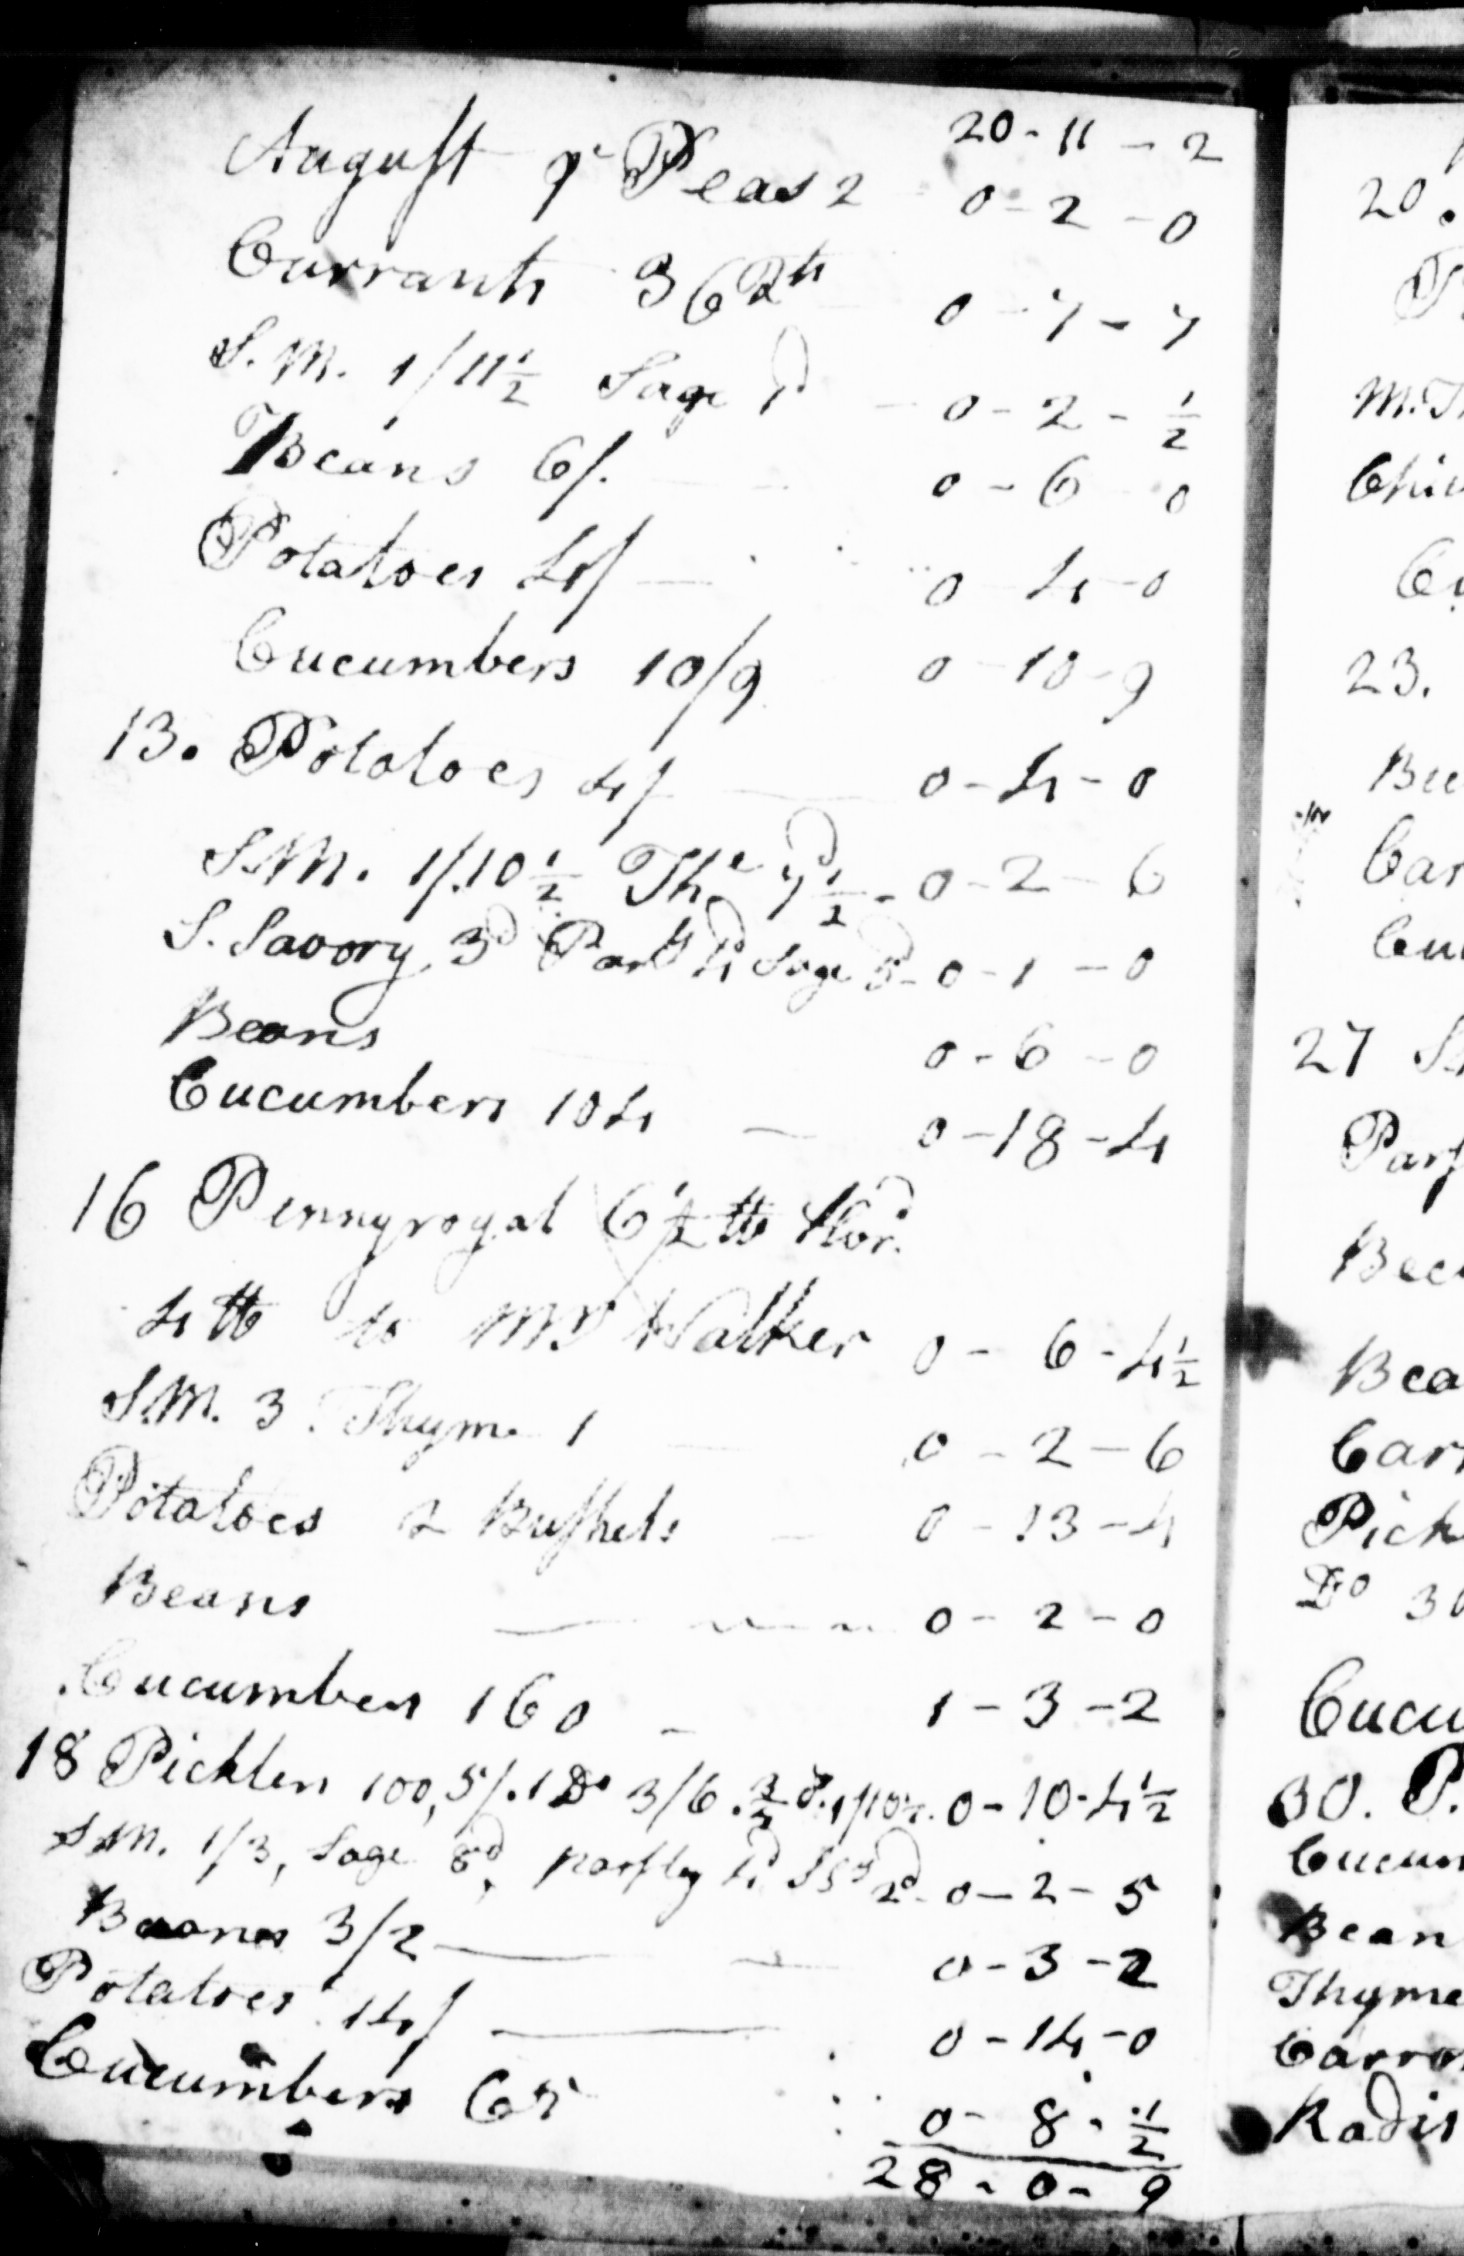 20-11-2
August 9 Peas 2 0-2-0
Currants 36 Qts 0-7-7
S.M. 1/11½ Sage 1d - 0-2-½
Beans 6/. 0-6 0
Potatoes 4/ 0 4-0
Cucumbers 10/9 0 10-9
13. Potatoes 4/ 0-4-0
S.M. 1/.10½ The 7d½ - 0-2-6
S. Savory 3d Pars 4d Sage 5d - 0-1-0
Beans 0-6-0
Cucumbers 104 — 0-18-4
16 Pennyroyal 6½ ℔
4 ℔ to Mrs Walker 0-6-4½
S.M. 3. Thyme 1 0-2-6
Potatoes 2 Bushels - 0-13-4
Beans — 0-2-0
Cucumbers 160 - 1-3-2
18 Pickles 100, 5/. 1 Do 3/6 . 1/10½. 0-10-4½
S.M. 1/3, Sage 8d, parsley 4d 2d - 0-2-5
Beans 3/2 — 0-3-2
Potatoes 14/ — 0-14-0
Cucumbers 65 0-8-½
28-0-9
20.
M.
23.
27
30. P.
Bean
Thyme